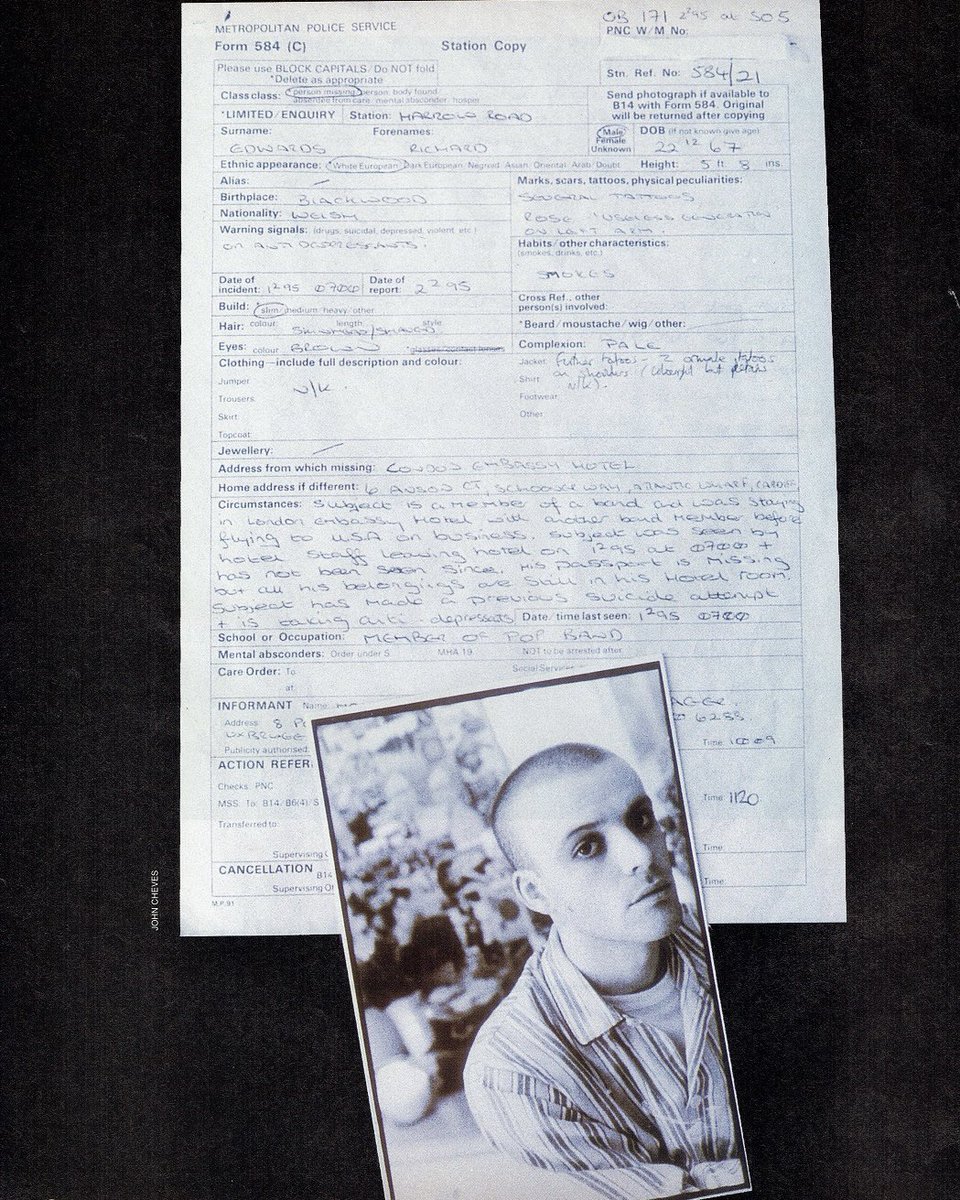 OB 171 2²95 at SO5
METROPOLITAN POLICE SERVICE
PNC W/M No:
Form 584 (C) Station Copy
Please use BLOCK CAPITALS/Do NOT fold
*Delete as appropriate
Stn. Ref. No: 584/21
Class class: *person missing/person, body found
absentee from care/mental absconder/hospital
Send photograph if available to
B14 with Form 584. Original
will be returned after copying
*LIMITED/ENQUIRY Station: HARROW ROAD
Surname: Forenames:
EDWARDS RICHARD
Male
Female
Unknown
DOB (if not known give age)
22 12 67
Ethnic appearance: White European Dark European, Negroid, Asian, Oriental, Arab, Doubt Height: 5 ft 8 ins.
Alias: —
Marks, scars, tattoos, physical peculiarities:
Birthplace: BLACKWOOD
SEVERAL TATTOOS
Nationality: WELSH
ROSE, 'USELESS GENERATION
Warning signals: (drugs, suicidal, depressed, violent, etc.)
ON LEFT ARM.
ON ANTI DEPRESSANTS.
Habits/other characteristics:
(smokes, drinks, etc.)
SMOKES
Date of
incident: 1²95 0700
Date of
report: 2 2 95
Cross Ref., other
person(s) involved:
Build: slim/medium/heavy/other
Hair: colour length style
SKINHEAD/SHAVED
*Beard/moustache/wig/other:
Eyes: colour BROWN *glasses/contact lenses
Complexion: PALE
Clothing—include full description and colour:
Jacket Further tatoos - 2 ornate tatoos
on shoulders (thought but details
Shirt N/K).
Jumper
N/K.
Trousers
Footwear
Skirt
Other
Topcoat
Jewellery: —
Address from which missing: LONDON EMBASSY HOTEL
Home address if different: 6 ANSON CT, SCHOONER WAY, ATLANTIC WHARF, CARDIFF
Circumstances: Subject is a member of a band and was staying
in London Embassy Hotel with another band member before
flying to USA on business. Subject was seen by
hotel staff leaving hotel on 1²95 at 0700 +
has not been seen since. His passport is missing
but all his belongings are still in his hotel room.
Subject has made a previous suicide attempt
+ is taking anti-depressants
Date/time last seen: 1²95 0700
School or Occupation: MEMBER OF POP BAND
Mental absconders: Order under S. MHA 19 NOT to be arrested after
Care Order: To Social Service
at
INFORMANT Name:
Address: 8
UXBRIDGE
6285
Publicity authorised: Time: 1009
ACTION REFER
Checks: PNC
MSS. To: B14/B6(4)/S Time: 1120
Transferred to:
Time:
Supervising
CANCELLATION B14
Time:
Supervising Of
M.P.91
JOHN CHEVES